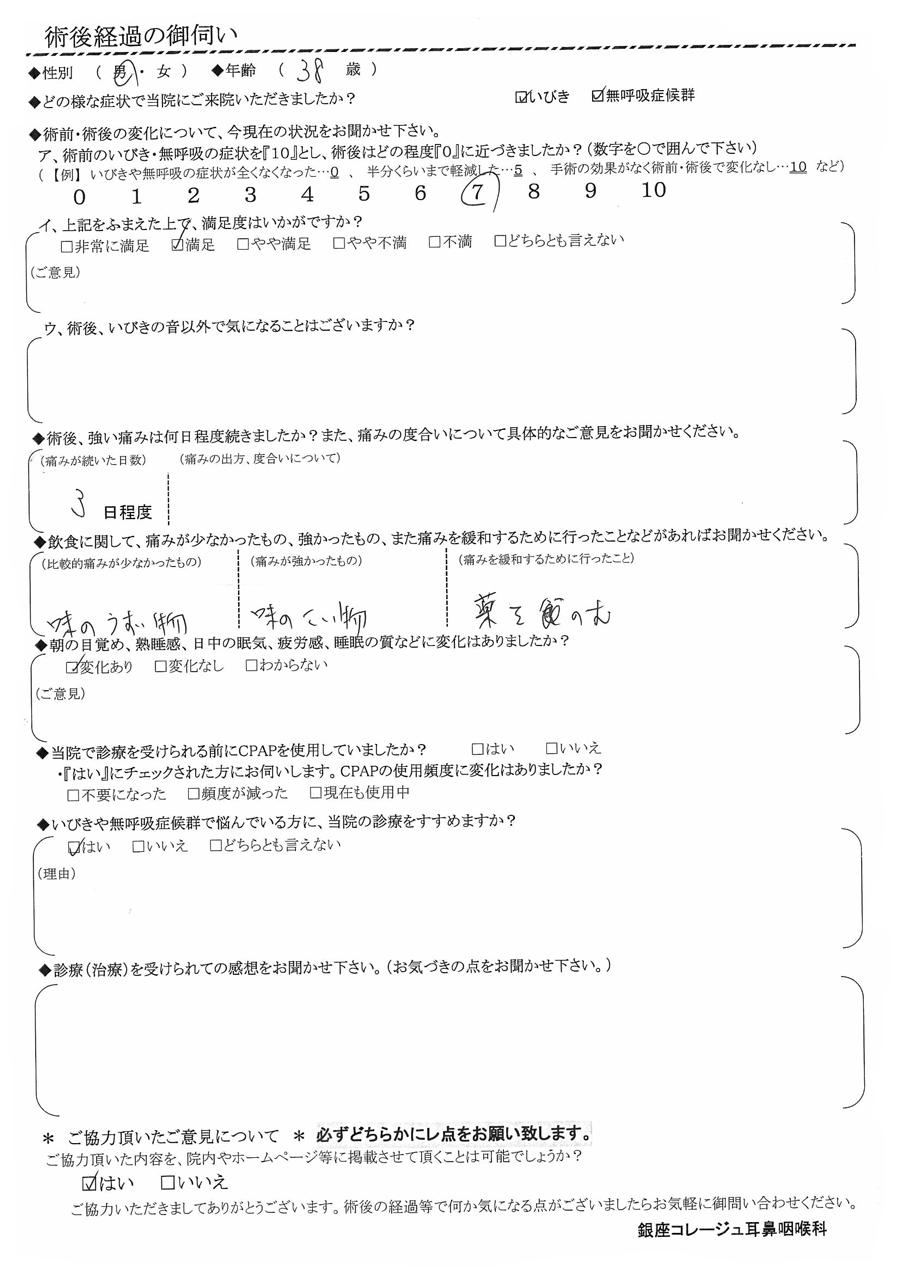 術後経過の御伺い
◆性別 ( 男 ・ 女 ) ◆年齢 ( 38 歳 )
◆どの様な症状で当院にご来院いただきましたか? ☑いびき ☑無呼吸症候群
◆術前・術後の変化について、今現在の状況をお聞かせ下さい。
ア、術前のいびき・無呼吸の症状を『10』とし、術後はどの程度『0』に近づきましたか?(数字を〇で囲んで下さい)
(【例】 いびきや無呼吸の症状が全くなくなった…0 、 半分くらいまで軽減した…5 、 手術の効果がなく術前・術後で変化なし…10 など)
0 1 2 3 4 5 6 7 8 9 10
イ、上記をふまえた上で、満足度はいかがですか?
□非常に満足 ☑満足 □やや満足 □やや不満 □不満 □どちらとも言えない
(ご意見)
ウ、術後、いびきの音以外で気になることはございますか?
◆術後、強い痛みは何日程度続きましたか?また、痛みの度合いについて具体的なご意見をお聞かせください。
(痛みが続いた日数) (痛みの出方、度合いについて)
3 日程度
◆飲食に関して、痛みが少なかったもの、強かったもの、また痛みを緩和するために行ったことなどがあればお聞かせください。
(比較的痛みが少なかったもの) (痛みが強かったもの) (痛みを緩和するために行ったこと)
味のうすい物 味のこい物 薬を のむ
◆朝の目覚め、熟睡感、日中の眠気、疲労感、睡眠の質などに変化はありましたか?
☑変化あり □変化なし □わからない
(ご意見)
◆当院で診療を受けられる前にCPAPを使用していましたか? □はい □いいえ
・『はい』にチェックされた方にお伺いします。CPAPの使用頻度に変化はありましたか?
□不要になった □頻度が減った □現在も使用中
◆いびきや無呼吸症候群で悩んでいる方に、当院の診療をすすめますか?
☑はい □いいえ □どちらとも言えない
(理由)
◆診療(治療)を受けられての感想をお聞かせ下さい。(お気づきの点をお聞かせ下さい。)
* ご協力頂いたご意見について * 必ずどちらかにレ点をお願い致します。
ご協力頂いた内容を、院内やホームページ等に掲載させて頂くことは可能でしょうか?
☑はい □いいえ
ご協力いただきましてありがとうございます。術後の経過等で何か気になる点がございましたらお気軽に御問い合わせください。
銀座コレージュ耳鼻咽喉科